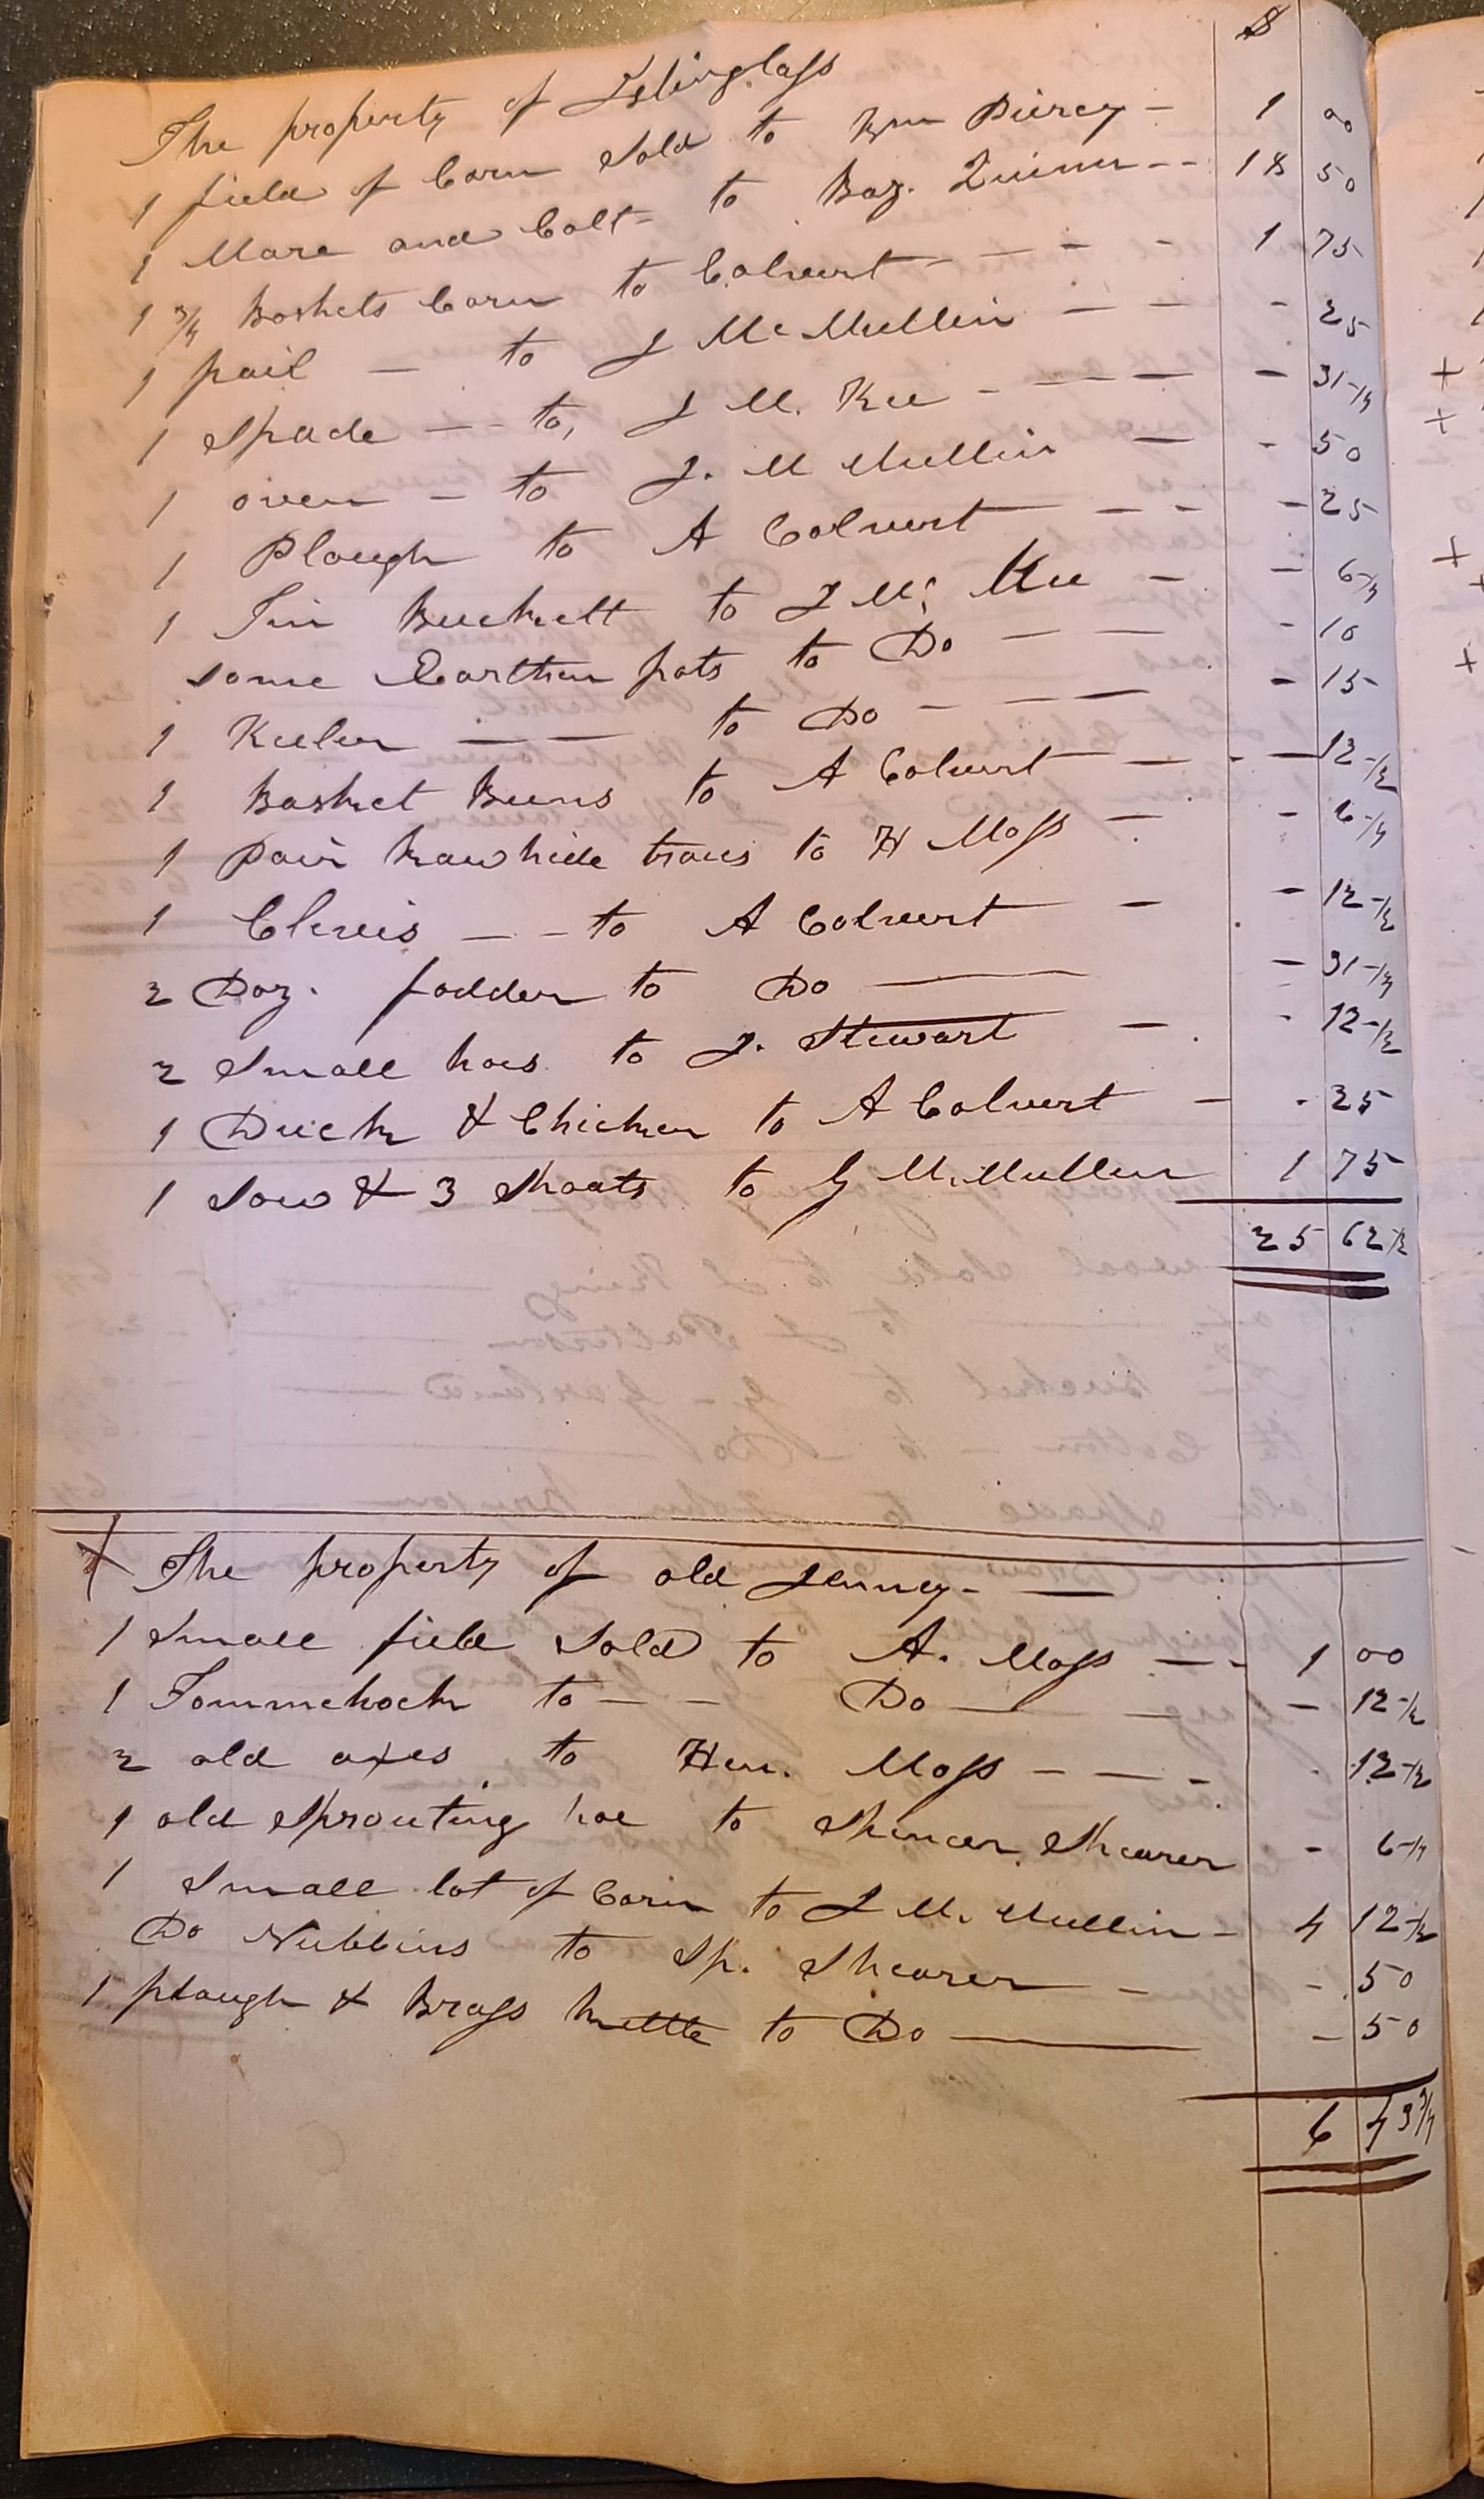 $
The property of Isinglass
1 field of Corn Sold to Wm Piercy — 1 00
1 Mare and Colt to Baz. Quinn -- 18 50
1 3/4 Baskets Corn to Colvert - - - - 1 75
1 pail — to J Mc Mullin — — - 25
1 Spade — - to, J M. Kee - — — - 31 1/4
1 oven - to J. M Mullin — - 50
1 Plough to A Colvert — - - - 25
1 Tin Buckett to J Mc Kee — - 6 1/4
some Earthen pots to Do — — - 10
1 Keeler — — to Do - — — - 15
1 Basket Beens to A Colvert — - — 12 1/2
1 Pair Rawhide traces to H Moss — - 6 1/4
1 Clevis — - - to A Colvert — - 12 1/2
2 Doz. fodder to Do — - 31 1/4
2 Small hoes to J. Stewart — - 12 1/2
1 Duck & Chicken to A Colvert — - 25
1 Sow & 3 Shoats to G McMullin 1 75
25 62 1/2
The property of old Jenney - —
1 Small field Sold to A. Moss — - 1 00
1 Tommehock to - - Do — — - 12 1/2
2 old axes to Hen. Moss - — - - 12 1/2
1 old Sprouting hoe to Spencer Shearer - 6 1/4
1 Small lot of Corn to J Mc Mullin - 4 12 1/2
Do Nubbins to Sp. Shearer - - 50
1 plough & Brass kettle to Do — - 50
6 43 3/4